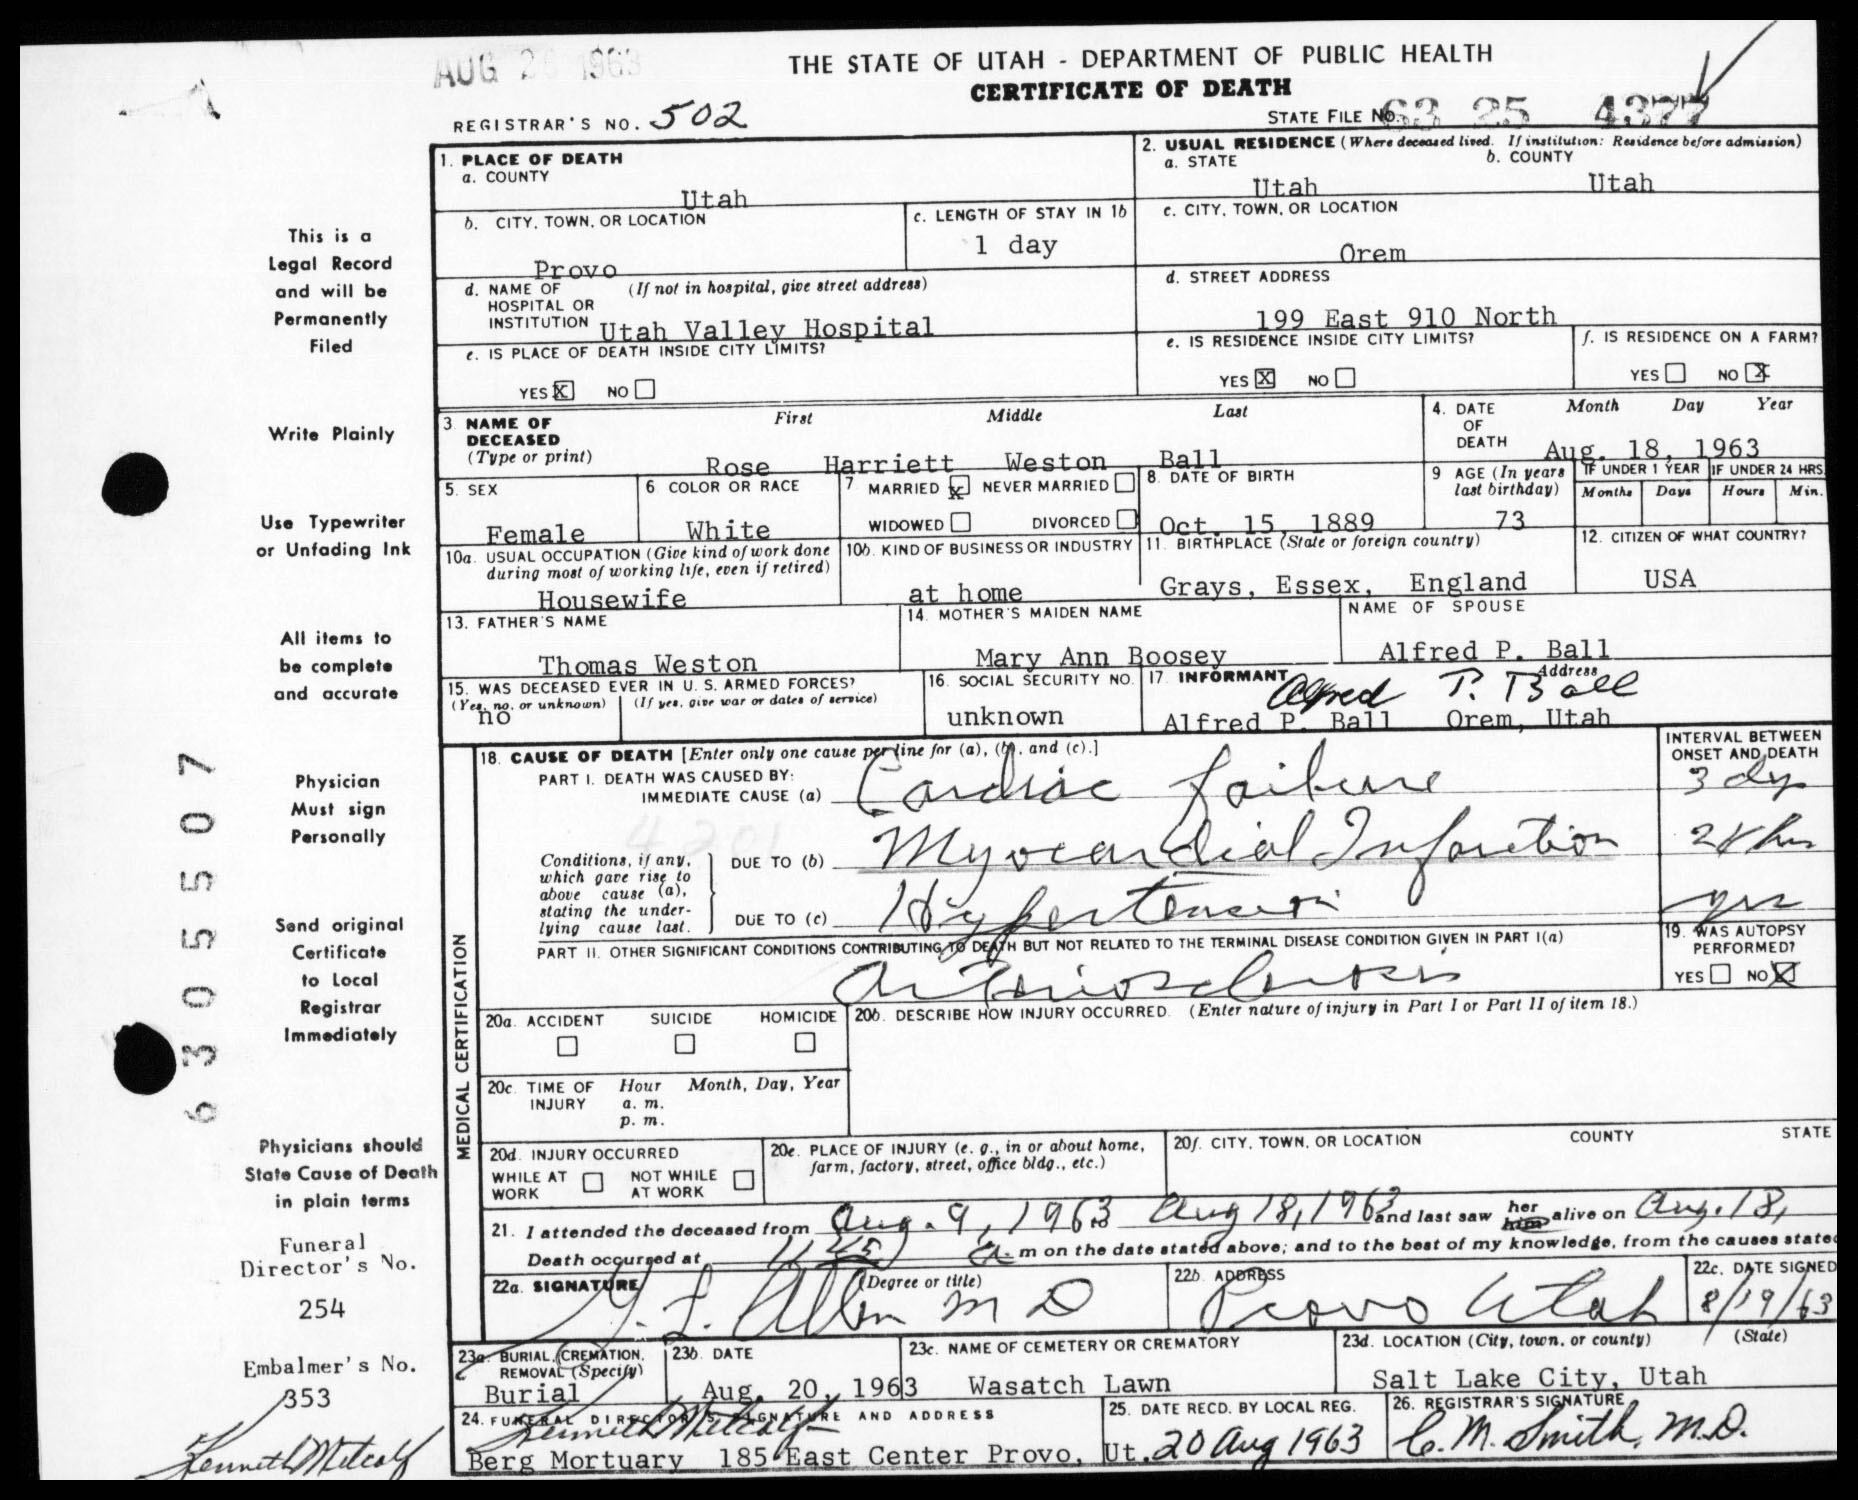 AUG 20 1963
THE STATE OF UTAH - DEPARTMENT OF PUBLIC HEALTH
CERTIFICATE OF DEATH
REGISTRAR'S NO. 502
STATE FILE NO. 63 25 4377
1. PLACE OF DEATH
a. COUNTY
Utah
2. USUAL RESIDENCE (Where deceased lived. If institution: Residence before admission)
a. STATE
Utah
b. COUNTY
Utah
b. CITY, TOWN, OR LOCATION
Provo
c. LENGTH OF STAY IN 1b
1 day
c. CITY, TOWN, OR LOCATION
Orem
d. NAME OF (If not in hospital, give street address)
HOSPITAL OR
INSTITUTION Utah Valley Hospital
d. STREET ADDRESS
199 East 910 North
e. IS PLACE OF DEATH INSIDE CITY LIMITS?
YES X NO
e. IS RESIDENCE INSIDE CITY LIMITS?
YES X NO
f. IS RESIDENCE ON A FARM?
YES NO X
3. NAME OF
DECEASED
(Type or print)
First Middle Last
Rose Harriett Weston Ball
4. DATE
OF
DEATH
Month Day Year
Aug. 18, 1963
5. SEX
Female
6 COLOR OR RACE
White
7 MARRIED X NEVER MARRIED
WIDOWED DIVORCED
8. DATE OF BIRTH
Oct. 15, 1889
9 AGE (In years
last birthday)
73
IF UNDER 1 YEAR
Months Days
IF UNDER 24 HRS.
Hours Min.
10a. USUAL OCCUPATION (Give kind of work done
during most of working life, even if retired)
Housewife
10b. KIND OF BUSINESS OR INDUSTRY
at home
11. BIRTHPLACE (State or foreign country)
Grays, Essex, England
12. CITIZEN OF WHAT COUNTRY?
USA
13. FATHER'S NAME
Thomas Weston
14. MOTHER'S MAIDEN NAME
Mary Ann Boosey
NAME OF SPOUSE
Alfred P. Ball
15. WAS DECEASED EVER IN U. S. ARMED FORCES?
(Yes, no, or unknown) (If yes, give war or dates of service)
no
16. SOCIAL SECURITY NO.
unknown
17. INFORMANT Address
Alfred P. Ball
Alfred P. Ball Orem, Utah
18. CAUSE OF DEATH [Enter only one cause per line for (a), (b), and (c).]
INTERVAL BETWEEN
ONSET AND DEATH
PART I. DEATH WAS CAUSED BY:
IMMEDIATE CAUSE (a) Cardiac failure 3 dys
4201
Conditions, if any,
which gave rise to
above cause (a),
stating the under-
lying cause last.
DUE TO (b) Myocardial Infarction 24 hrs
DUE TO (c) Hypertension yrs
PART II. OTHER SIGNIFICANT CONDITIONS CONTRIBUTING TO DEATH BUT NOT RELATED TO THE TERMINAL DISEASE CONDITION GIVEN IN PART I(a)
Arteriosclerosis
19. WAS AUTOPSY
PERFORMED?
YES NO X
MEDICAL CERTIFICATION
20a. ACCIDENT SUICIDE HOMICIDE
20b. DESCRIBE HOW INJURY OCCURRED. (Enter nature of injury in Part I or Part II of item 18.)
20c. TIME OF Hour Month, Day, Year
INJURY a. m.
p. m.
20d. INJURY OCCURRED
WHILE AT WORK NOT WHILE AT WORK
20e. PLACE OF INJURY (e. g., in or about home,
farm, factory, street, office bldg., etc.)
20f. CITY, TOWN, OR LOCATION COUNTY STATE
21. I attended the deceased from Aug. 9, 1963 to Aug 18, 1963 and last saw her him alive on Aug. 18,
Death occurred at 11:45 a. m on the date stated above; and to the best of my knowledge, from the causes stated
22a. SIGNATURE (Degree or title)
Allen M D
22b. ADDRESS
Provo Utah
22c. DATE SIGNED
8/19/63
23a. BURIAL, CREMATION,
REMOVAL (Specify)
Burial
23b. DATE
Aug. 20, 1963
23c. NAME OF CEMETERY OR CREMATORY
Wasatch Lawn
23d. LOCATION (City, town, or county) (State)
Salt Lake City, Utah
24. FUNERAL DIRECTOR'S SIGNATURE AND ADDRESS
Kenneth Metcalf
Berg Mortuary 185 East Center Provo, Ut.
25. DATE RECD. BY LOCAL REG.
20 Aug 1963
26. REGISTRAR'S SIGNATURE
C. M. Smith, M.D.
This is a
Legal Record
and will be
Permanently
Filed
Write Plainly
Use Typewriter
or Unfading Ink
All items to
be complete
and accurate
Physician
Must sign
Personally
Send original
Certificate
to Local
Registrar
Immediately
Physicians should
State Cause of Death
in plain terms
Funeral
Director's No.
254
Embalmer's No.
353
Kenneth Metcalf
6305507